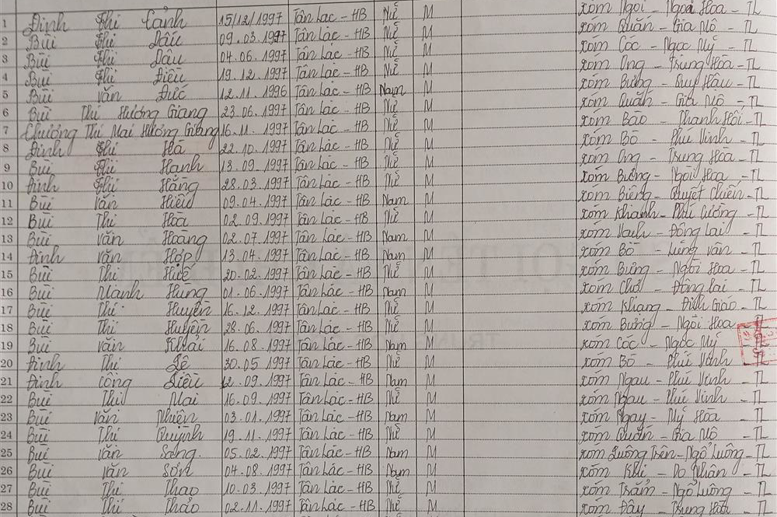 1 Đinh Thị Cảnh 15/12/1997 Tân Lạc - HB Nữ M xóm Ngòi - Ngòi Hoa - TL
2 Bùi Thị Dấu 09.03.1997 Tân Lạc - HB Nữ M xóm Quắn - Gia Mô - TL
3 Bùi Thị Dậu 04.06.1997 Tân Lạc - HB Nữ M xóm Cóc - Ngọc Mỹ - TL
4 Bùi Thị Điều 19.12.1997 Tân Lạc - HB Nữ M xóm Ong - Trung Hòa - TL
5 Bùi Văn Đức 12.11.1996 Tân Lạc - HB Nam M xóm Bưng - Quy Hậu - TL
6 Bùi Thị Hương Giang 23.06.1997 Tân Lạc - HB Nữ M xóm Quắn - Gia Mô - TL
7 Chương Thị Mai Hương Giang 16.11.1997 Tân Lạc - HB Nữ M xóm Bào - Thanh Hối - TL
8 Đinh Thị Hà 22.10.1997 Tân Lạc - HB Nữ M xóm Bò - Phú Vinh - TL
9 Bùi Thị Hạnh 13.09.1997 Tân Lạc - HB Nữ M xóm Ong - Trung Hòa - TL
10 Đinh Thị Hằng 28.03.1997 Tân Lạc - HB Nữ M xóm Bưng - Ngòi Hoa - TL
11 Bùi Văn Hiếu 09.04.1997 Tân Lạc - HB Nam M xóm Biêng - Quyết Chiến - TL
12 Bùi Thị Hòa 02.09.1997 Tân Lạc - HB Nữ M xóm Khanh - Phú Cường - TL
13 Bùi Văn Hoàng 02.07.1997 Tân Lạc - HB Nam M xóm - Đông Lai - TL
14 Đinh Văn Hợp 13.04.1997 Tân Lạc - HB Nam M xóm Bò - Lũng Vân - TL
15 Bùi Thị Huế 20.02.1997 Tân Lạc - HB Nữ M xóm Bưng - Ngòi Hoa - TL
16 Bùi Mạnh Hùng 01.06.1997 Tân Lạc - HB Nam M xóm - Đông Lai - TL
17 Bùi Thị Huyền 16.12.1997 Tân Lạc - HB Nữ M xóm Khạng - Định Giáo - TL
18 Bùi Thị Huyền 28.06.1997 Tân Lạc - HB Nữ M xóm Bưng - Ngòi Hoa - TL
19 Bùi Văn Khải 16.08.1997 Tân Lạc - HB Nam M xóm Cóc - Ngọc Mỹ - TL
20 Đinh Thị Lê 30.05.1997 Tân Lạc - HB Nữ M xóm Bò - Phú Vinh - TL
21 Đinh Công Liễu 12.09.1997 Tân Lạc - HB Nam M xóm Ngau - Phú Vinh - TL
22 Bùi Thị Mai 16.09.1997 Tân Lạc - HB Nữ M xóm Ngau - Phú Vinh - TL
23 Bùi Văn Nhiện 03.01.1997 Tân Lạc - HB Nam M xóm Ngay - Mỹ Hòa - TL
24 Bùi Thị Quỳnh 19.11.1997 Tân Lạc - HB Nữ M xóm Quắn - Gia Mô - TL
25 Bùi Văn Sang 05.02.1997 Tân Lạc - HB Nam M xóm Luông Trên - Ngổ Luông - TL
26 Bùi Văn Sơn 04.08.1997 Tân Lạc - HB Nam M xóm Khi - Do Nhân - TL
27 Bùi Thị Thao 10.03.1997 Tân Lạc - HB Nữ M xóm Trăm - Ngổ Luông - TL
28 Bùi Thị Thảo 02.11.1997 Tân Lạc - HB Nữ M xóm Đây - Trung Hòa - TL